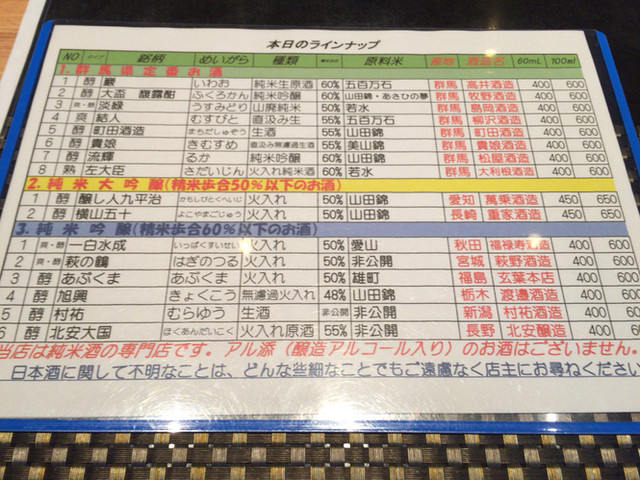 本日のラインナップ
NO タイプ 銘柄 めいがら 種類 原料米 産地 酒造名 60mL 100ml
1.群馬県定番お酒
1 醇 巖 いわお 純米生原酒 60% 五百万石 群馬 高井酒造 400 600
2 醇 大盃 馥露酣 ふくろかん 純米吟醸 60% 山田錦・あさひの夢 群馬 牧野酒造 400 600
3 爽・醇 淡緑 うすみどり 山廃純米 60% 若水 群馬 島岡酒造 400 600
4 爽 結人 むすびと 直汲み生 55% 五百万石 群馬 柳沢酒造 400 600
5 醇 町田酒造 まちだしゅぞう 生酒 55% 山田錦 群馬 町田酒造 400 600
6 醇 貴娘 きむすめ 直汲み無濾過生酒 55% 美山錦 群馬 貴娘酒造 400 600
7 醇 流輝 るか 純米吟醸 60% 山田錦 群馬 松屋酒造 400 600
8 熟 左大臣 さだいじん 火入れ純米酒 60% 若水 群馬 大利根酒造 400 600
2.純米大吟醸(精米歩合50%以下のお酒)
1 醇 醸し人九平治 かもしびとくへいじ 火入れ 50% 山田錦 愛知 萬乗酒造 450 650
2 醇 横山五十 よこやまごじゅう 火入れ 50% 山田錦 長崎 重家酒造 450 650
3.純米吟醸(精米歩合60%以下のお酒)
1 爽・醇 一白水成 いっぱくすいせい 火入れ 50% 愛山 秋田 福禄寿酒造 400 600
2 爽・醇 萩の鶴 はぎのつる 火入れ 50% 非公開 宮城 萩野酒造 400 600
3 醇 あぶくま あぶくま 火入れ 50% 雄町 福島 玄葉本店 400 600
4 醇 旭興 きょくこう 無濾過火入れ 48% 山田錦 栃木 渡邉酒造 400 600
5 醇 村祐 むらゆう 生酒 非公開 非公開 新潟 村祐酒造 400 600
6 醇 北安大国 ほくあんだいこく 火入れ原酒 55% 非公開 長野 北安醸造 400 60
当店は純米酒の専門店です。アル添（醸造アルコール入り）のお酒はございません。
日本酒に関して不明なことは、どんな些細なことでもご遠慮なく店主にお尋ねください